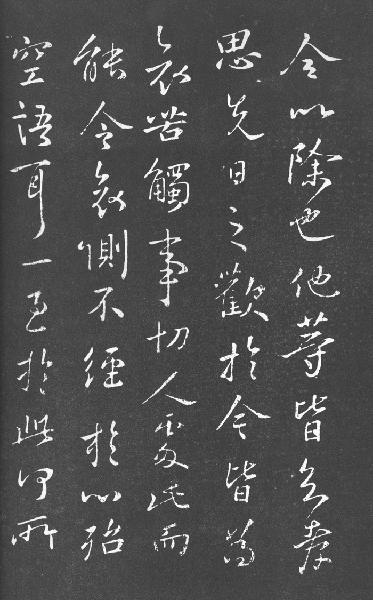 今以除也他等皆
思先日之歡於今皆為
哀苦觸事切人處此而
能令哀惻不經於心殆
空語耳一至於此何所